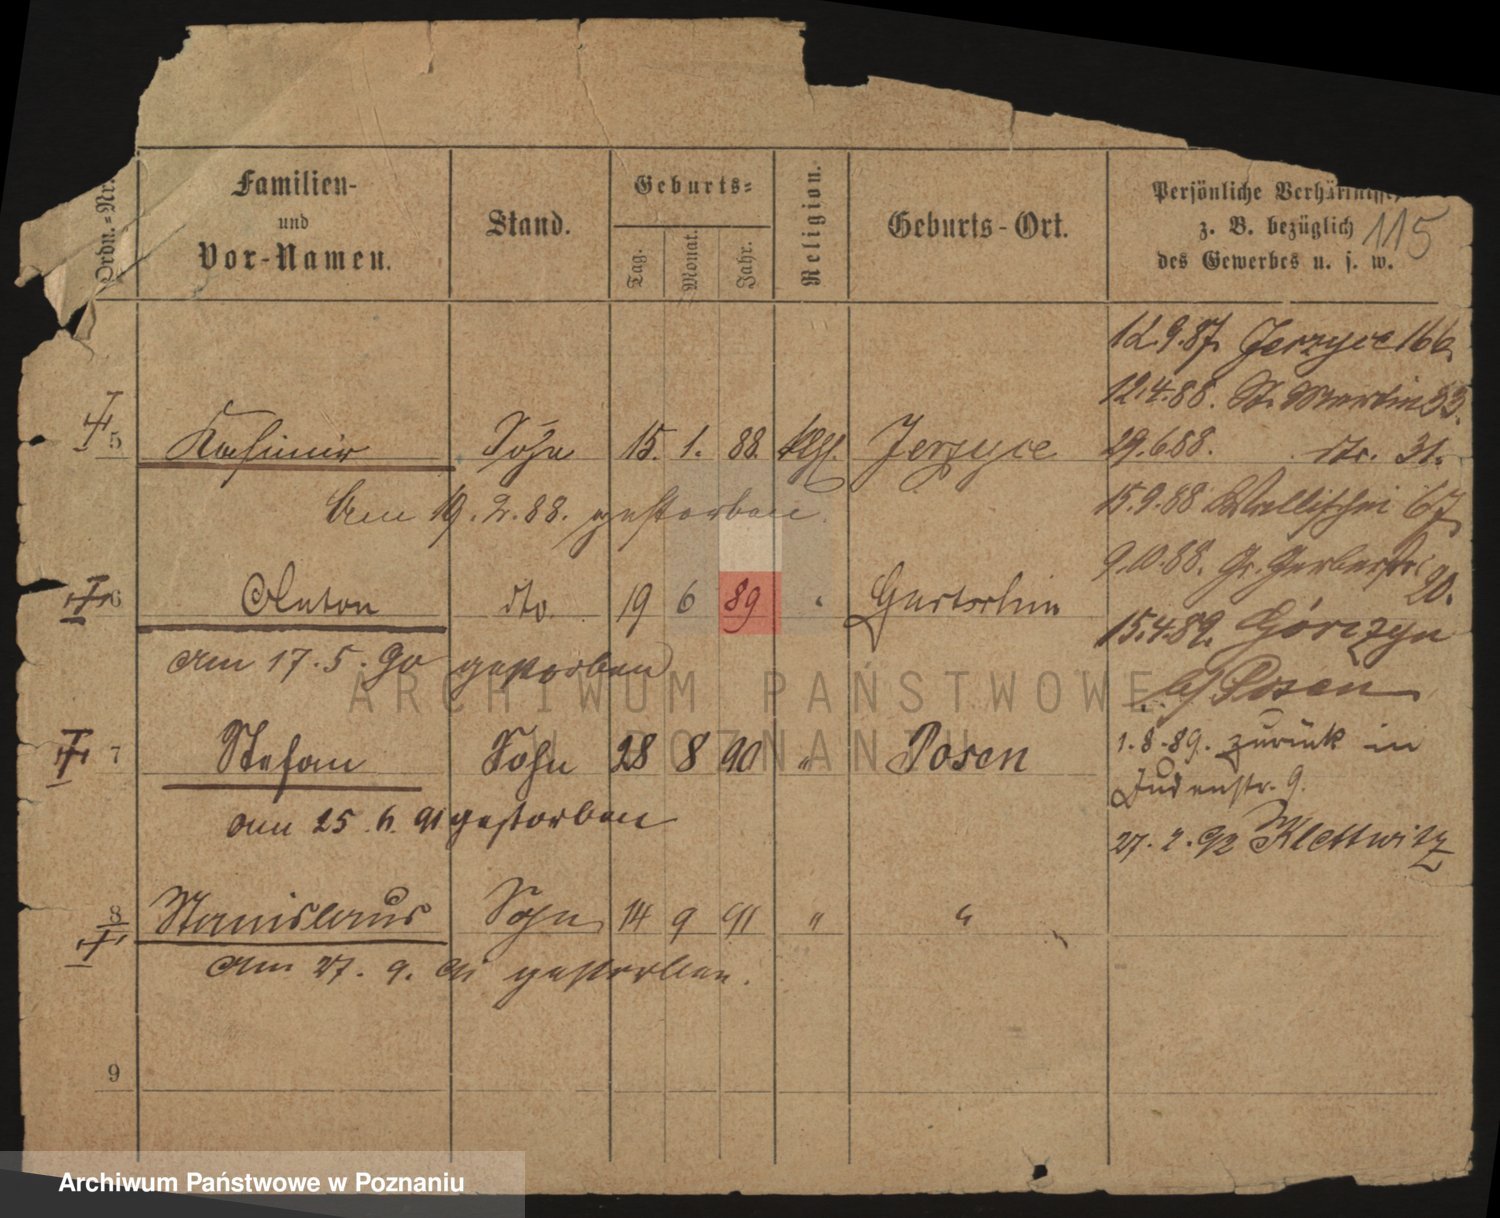 Ordn.-Nr.
Familien-
und
Vor-Namen.
Stand.
Geburts-
Tag.
Monat.
Jahr.
Religion.
Geburts-Ort.
Persönliche Verhältnisse,
z. B. bezüglich
des Gewerbes u. s. w.
115
12.9.87. Jerzyce 166.
12.4.88. St. Martin 33.
5 Kasimir Sohn 15. 1. 88. kth. Jerzyce
29.6.88. dto. 31.
Am 19.2.88. gestorben.
15.9.88 Wallischei 67
9.10.88. Gr. Gerberstr. 20.
6 Anton dto. 19 6 89 "
15.4.89. Górczyn
b/ Posen
am 17.5.90 gestorben
7 Stefan Sohn 28 8 90 " Posen
1.8.89. zurück in
Judenstr. 9.
am 25.6.91 gestorben
27.2.92 Klettwitz
8 Stanislaus Sohn 14 9 91 " "
am 27.9.91 gestorben.
9
ARCHIWUM PAŃSTWOWE
W POZNANIU
Archiwum Państwowe w Poznaniu